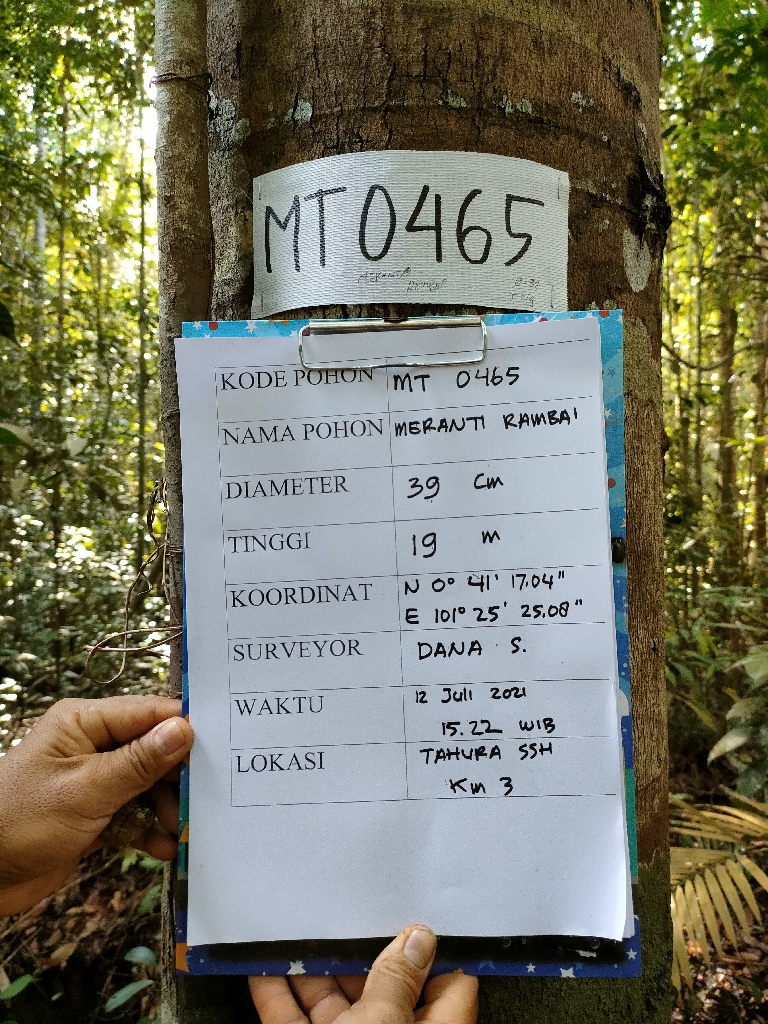 MT0465
KODE POHON MT 0465
NAMA POHON MERANTI RAMBAI
DIAMETER 39 Cm
TINGGI 19 m
KOORDINAT N 0° 41' 17.04"
E 101° 25' 25.08"
SURVEYOR DANA S.
WAKTU 12 Juli 2021
15.22 WIB
LOKASI TAHURA SSH
Km 3